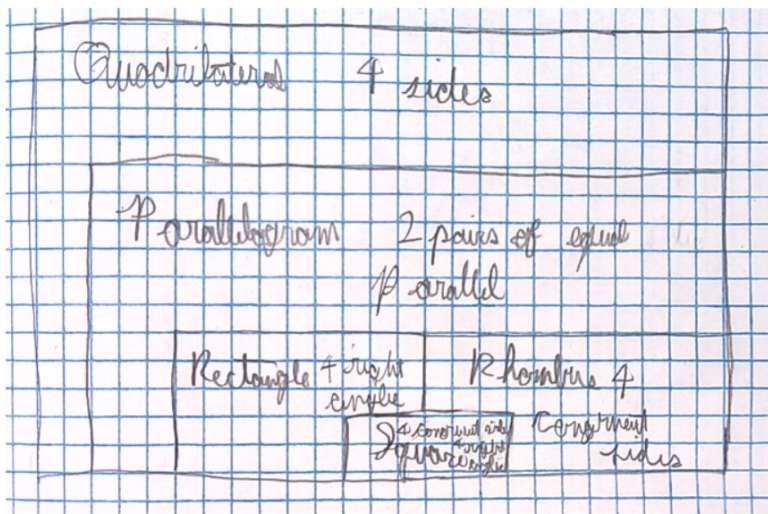 Quadrilateral 4 sides
Parallelogram 2 pairs of equal
parallel
Rectangle 4 right
angle
Rhombus 4
Congruent
sides
4 congruent side
4 right
angle
Square